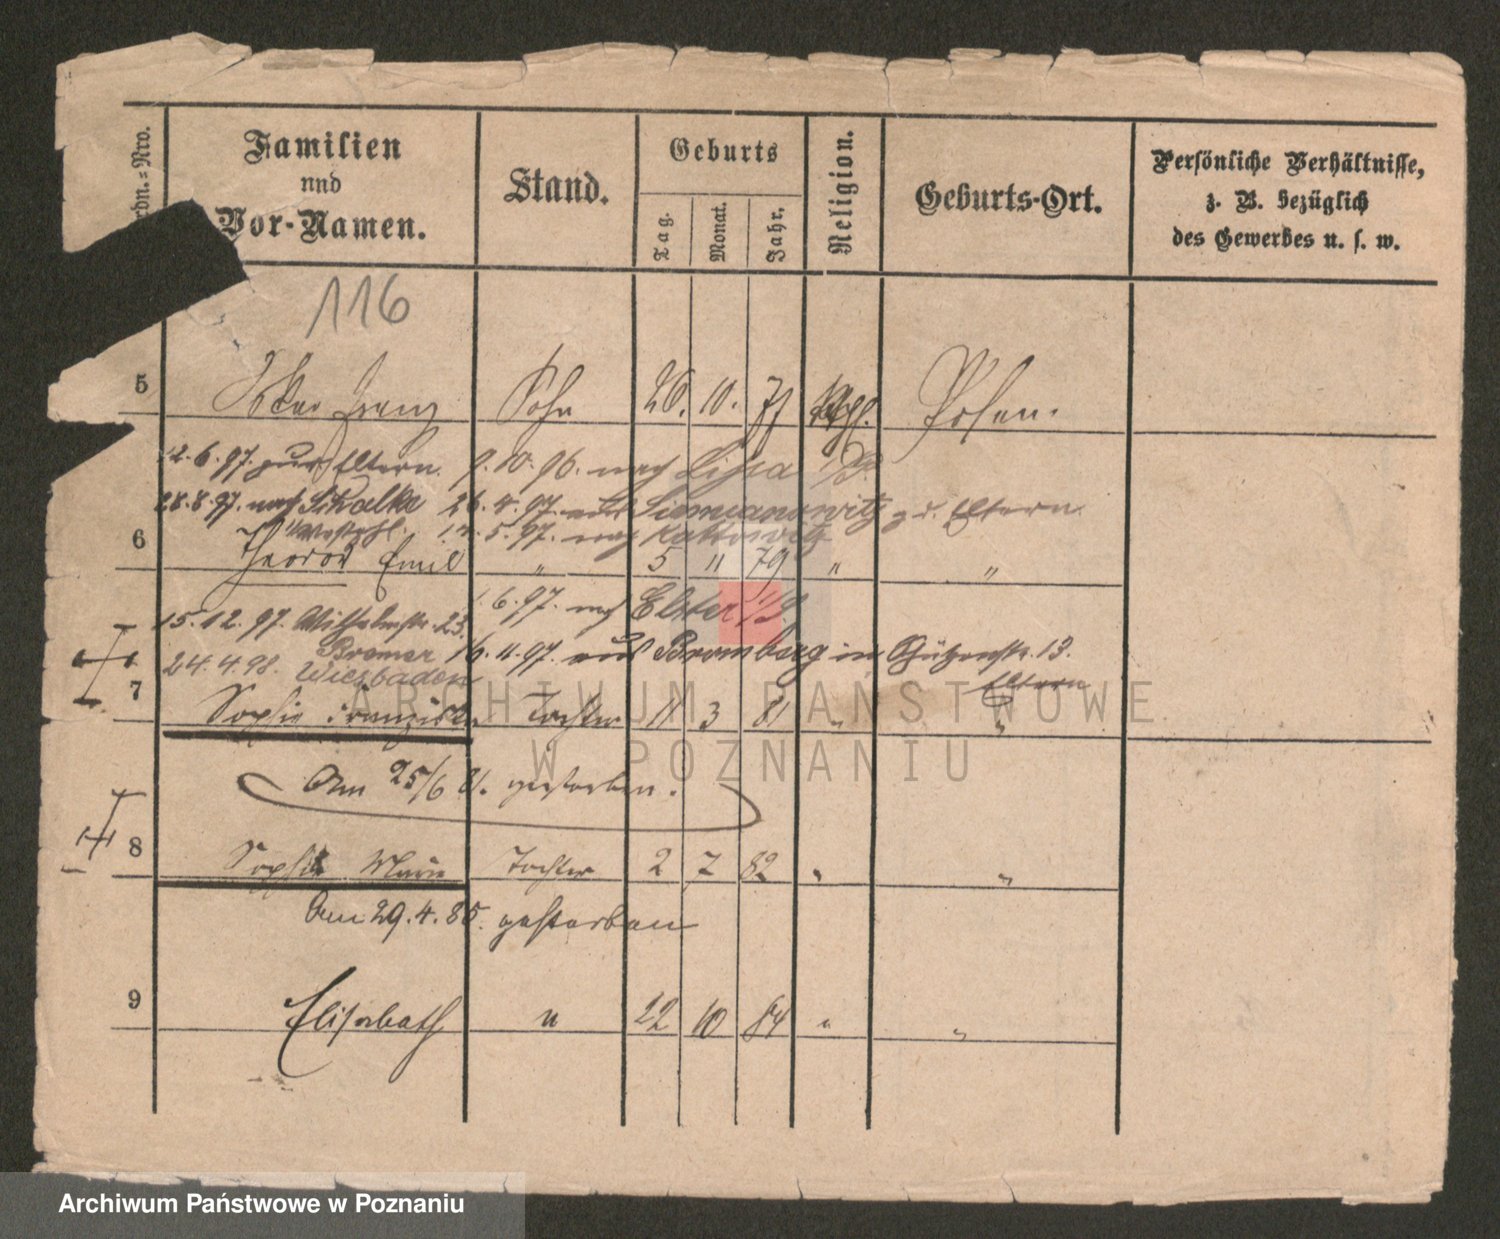 Ordn.=Nro.
Familien
und
Vor-Namen.
Stand.
Geburts
Tag.
Monat.
Jahr.
Religion.
Geburts-Ort.
Persönliche Verhältnisse,
z. B. bezüglich
des Gewerbes u. s. w.
116
5 Franz Sohn 26. 10. 77 Posen.
12.6.97. zur Eltern. 9.10.96. nach Lissa i/P.
28.8.97. nach Schalke 26.4.97. aus Siemianowitz z. d. Eltern.
i/Westphl. 5.97. nach Kattowitz
6 Theodor Emil " 5 " 79 " "
6.97. nach Elster
15.12.97. Wilhelmstr. 23.
Bromer 16.11.97. aus Bromberg in Schützenstr. 13.
24.4.98. Wiesbaden Eltern
7 Sophie Franziska Tochter 11 3 81 " "
Am 25/6 81. gestorben.
8 Sophie Marie Tochter 2 7 82 " "
Am 29.4.85. gestorben
9 Elisabeth " 22 10 84 " "
ARCHIWUM PAŃSTWOWE
W POZNANIU
Archiwum Państwowe w Poznaniu